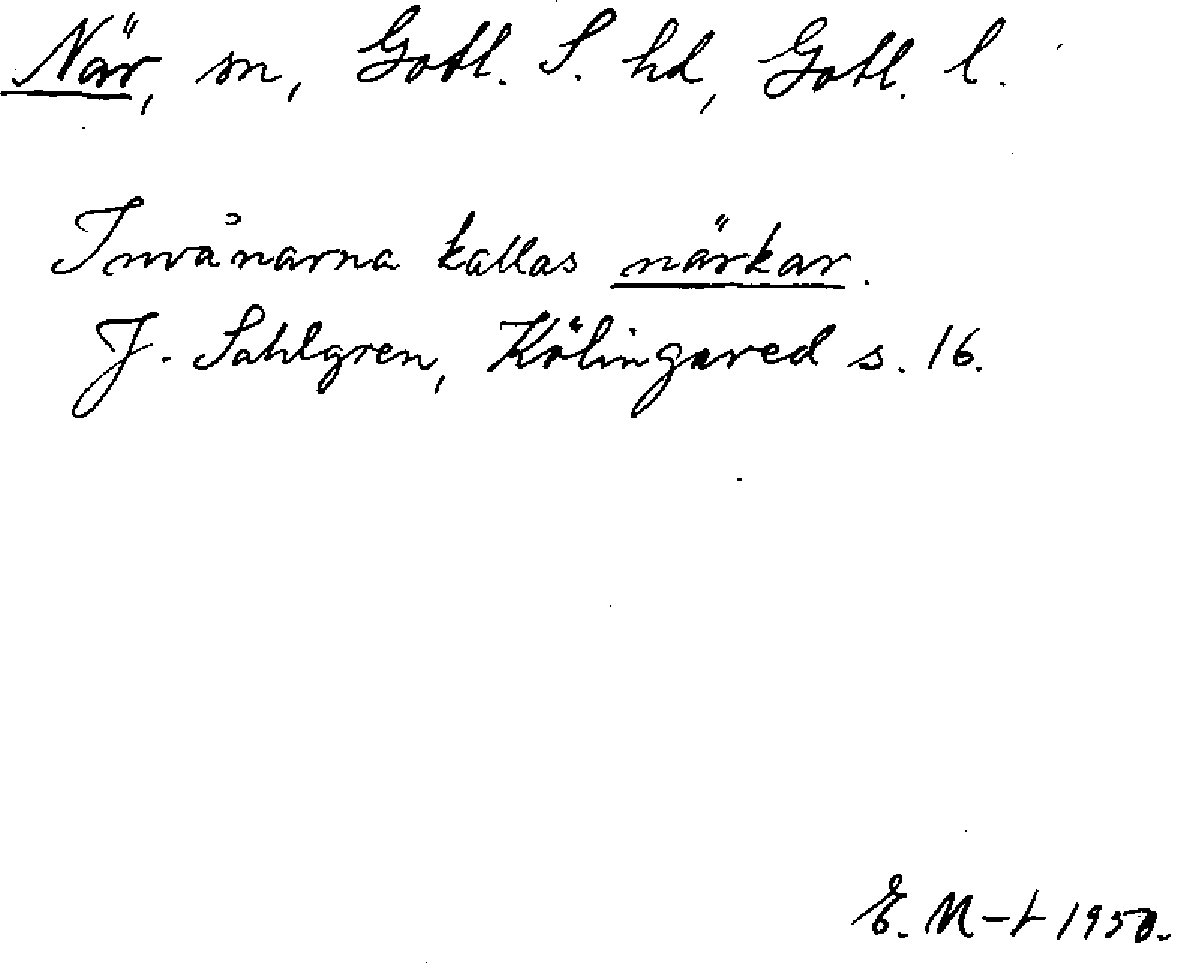 När, sn, Gotl. S. hd, Gotl. l.
Invånarna kallas närkar.
J. Sahlgren, Kölingared s. 16.
E. N-t 1950.